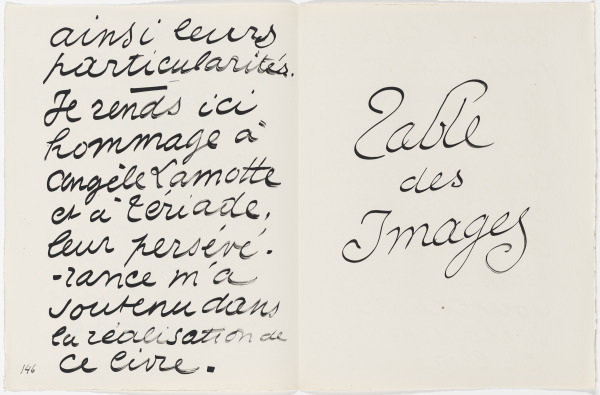 ainsi leurs
particularités.
Je rends ici
hommage à
Angèle Lamotte
et à Tériade,
leur persévé-
-rance m'a
soutenu dans
la réalisation de
ce livre.
146
Table
des
Images